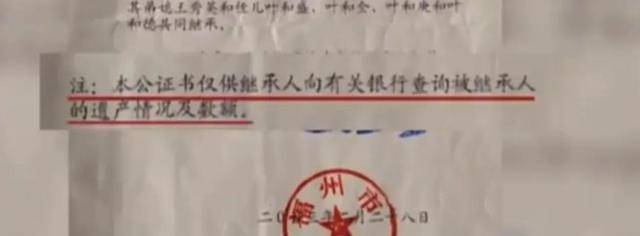 其弟媳王秀英和侄儿叶和盛、叶和全、叶和庚和叶
和德共同继承。
注：本公证书仅供继承人向有关银行查询被继承人
的遗产情况及数额。
福州市
二〇 三年二月二十八日